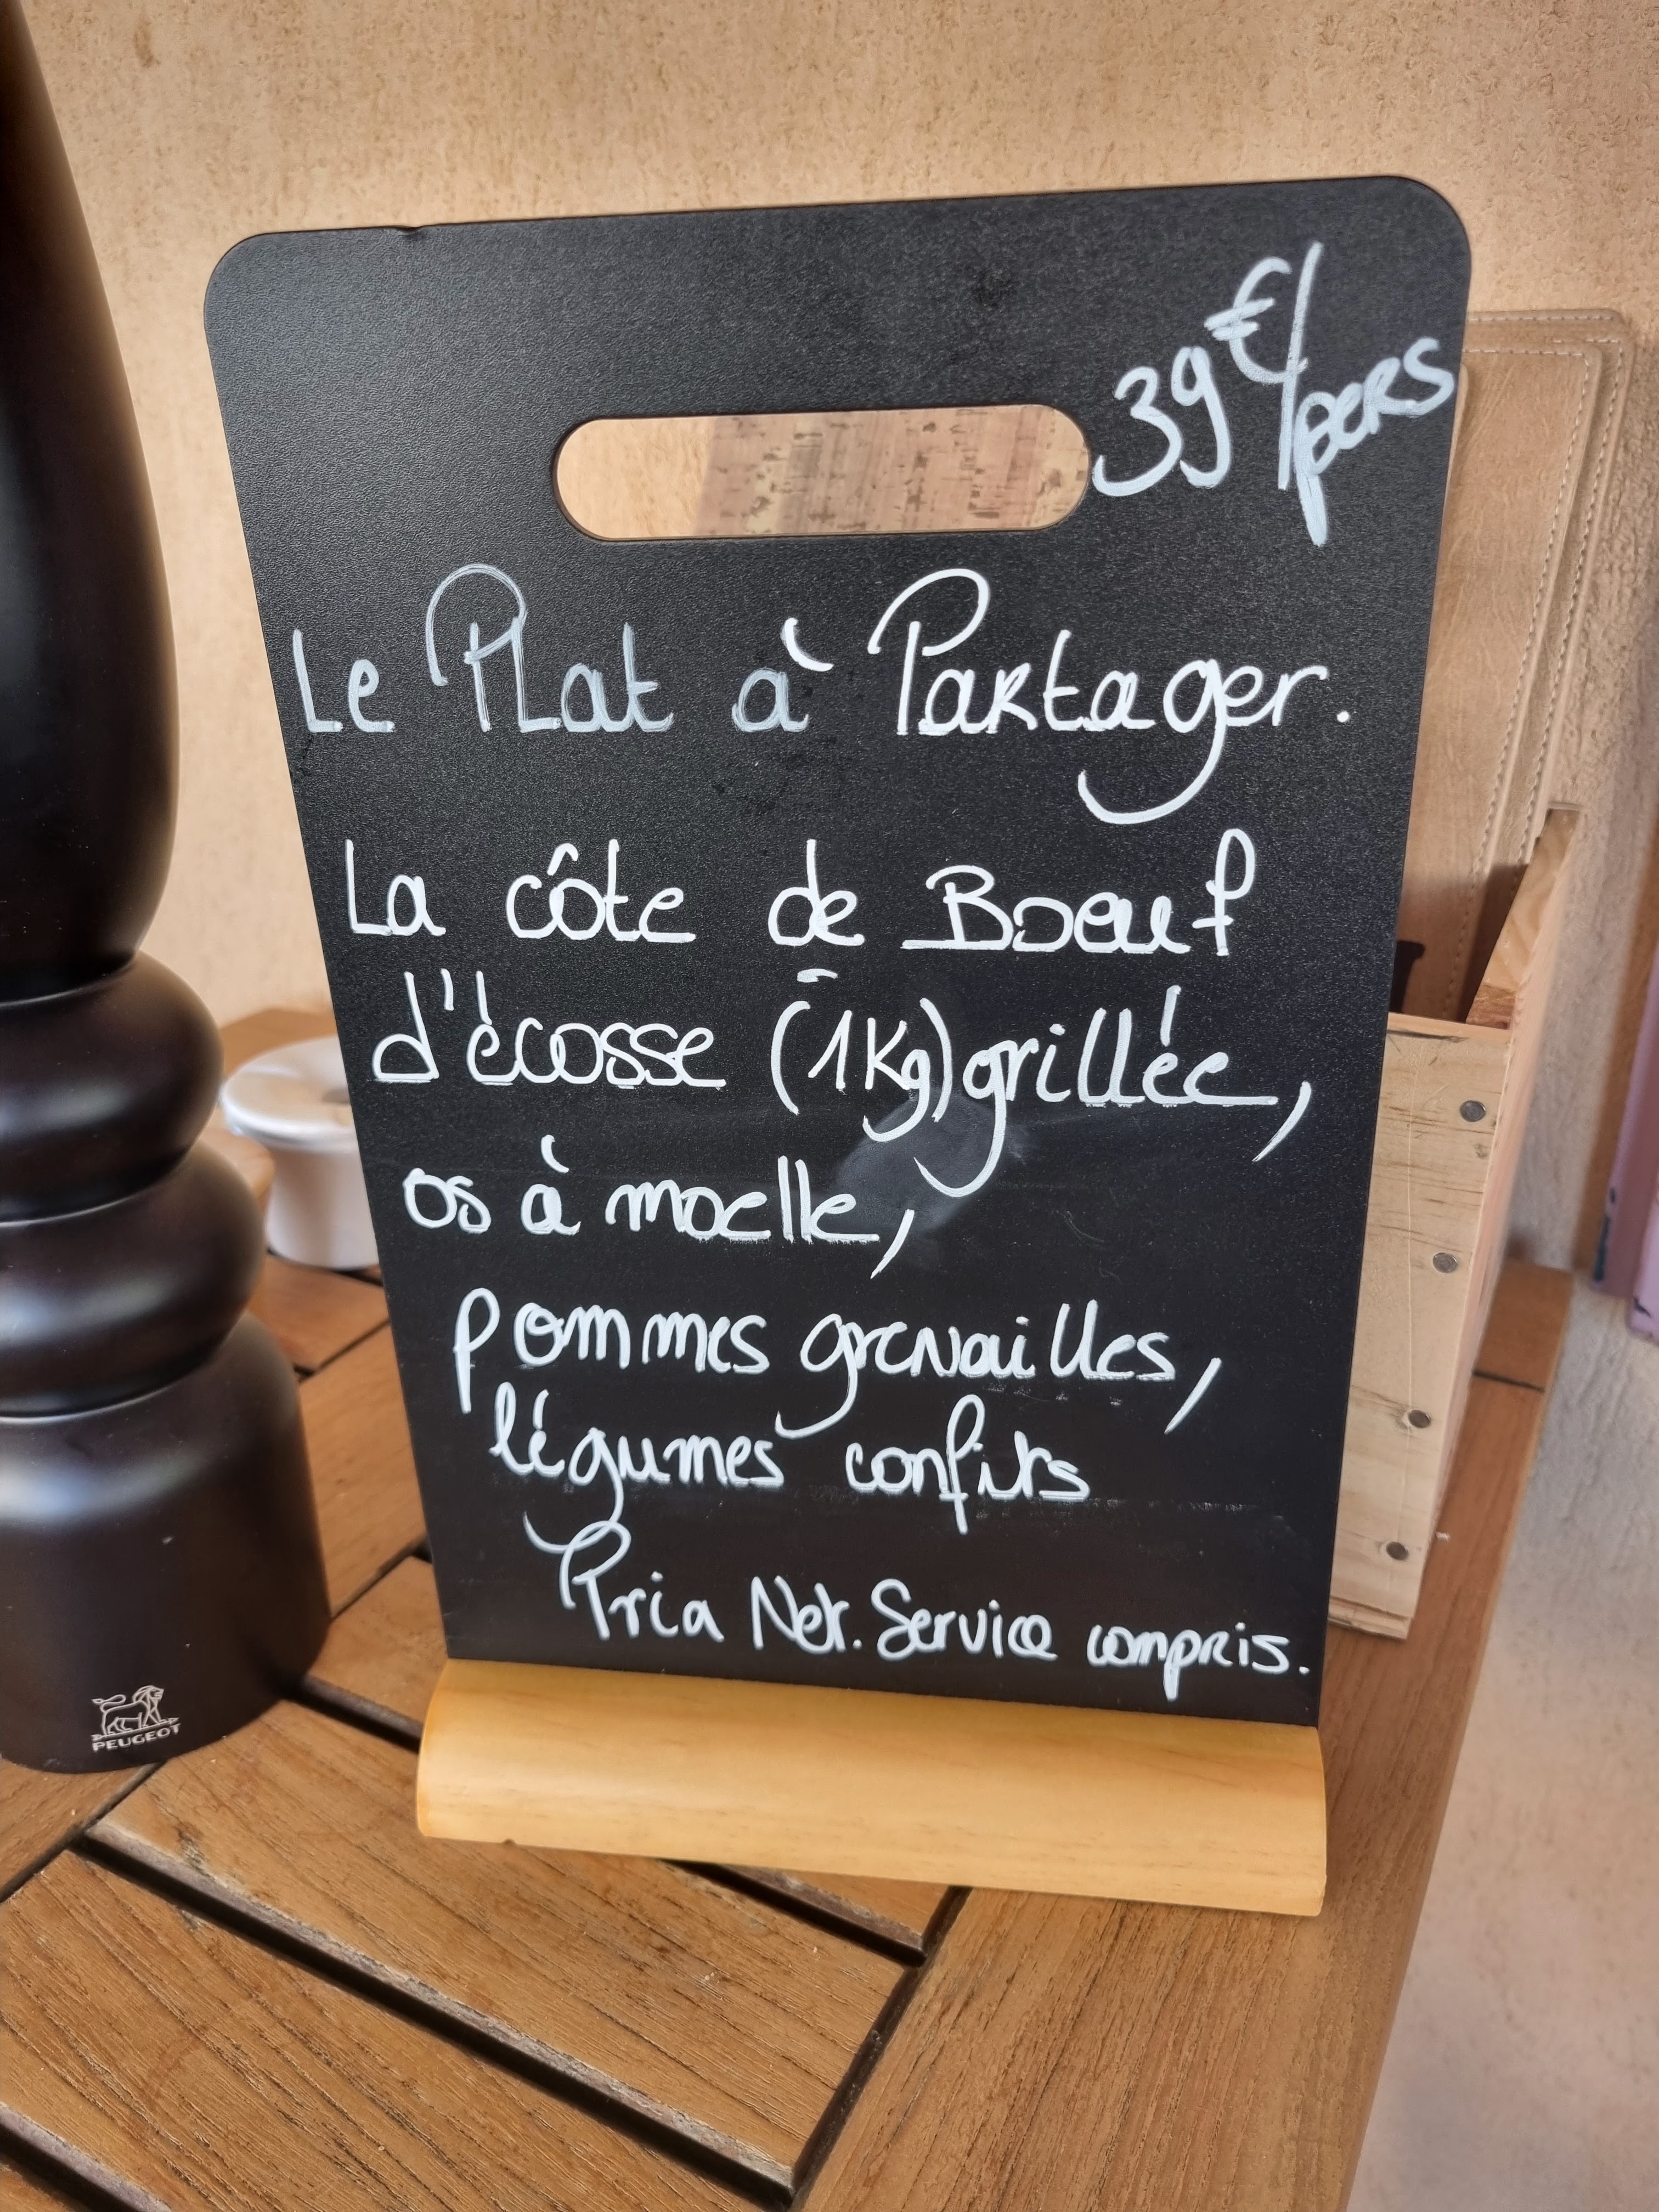 39€/pers
Le Plat à Partager.
La côte de Boeuf
d'écosse (1Kg) grillée,
os à moelle,
pommes grenailles,
légumes confits
Prix Net. Service compris.
PEUGEOT